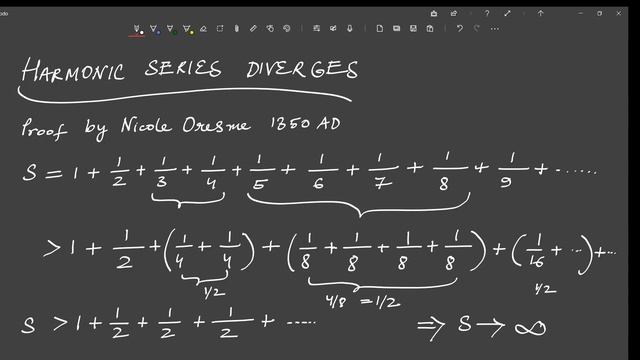 odo
HARMONIC SERIES DIVERGES
Proof by Nicole Oresme 1350 AD
S = 1 + 1/2 + 1/3 + 1/4 + 1/5 + 1/6 + 1/7 + 1/8 + 1/9 + ......
> 1 + 1/2 + (1/4 + 1/4) + (1/8 + 1/8 + 1/8 + 1/8) + (1/16 + ...) + ...
1/2 4/8 = 1/2 1/2
S > 1 + 1/2 + 1/2 + 1/2 + ...... ⇒ S → ∞